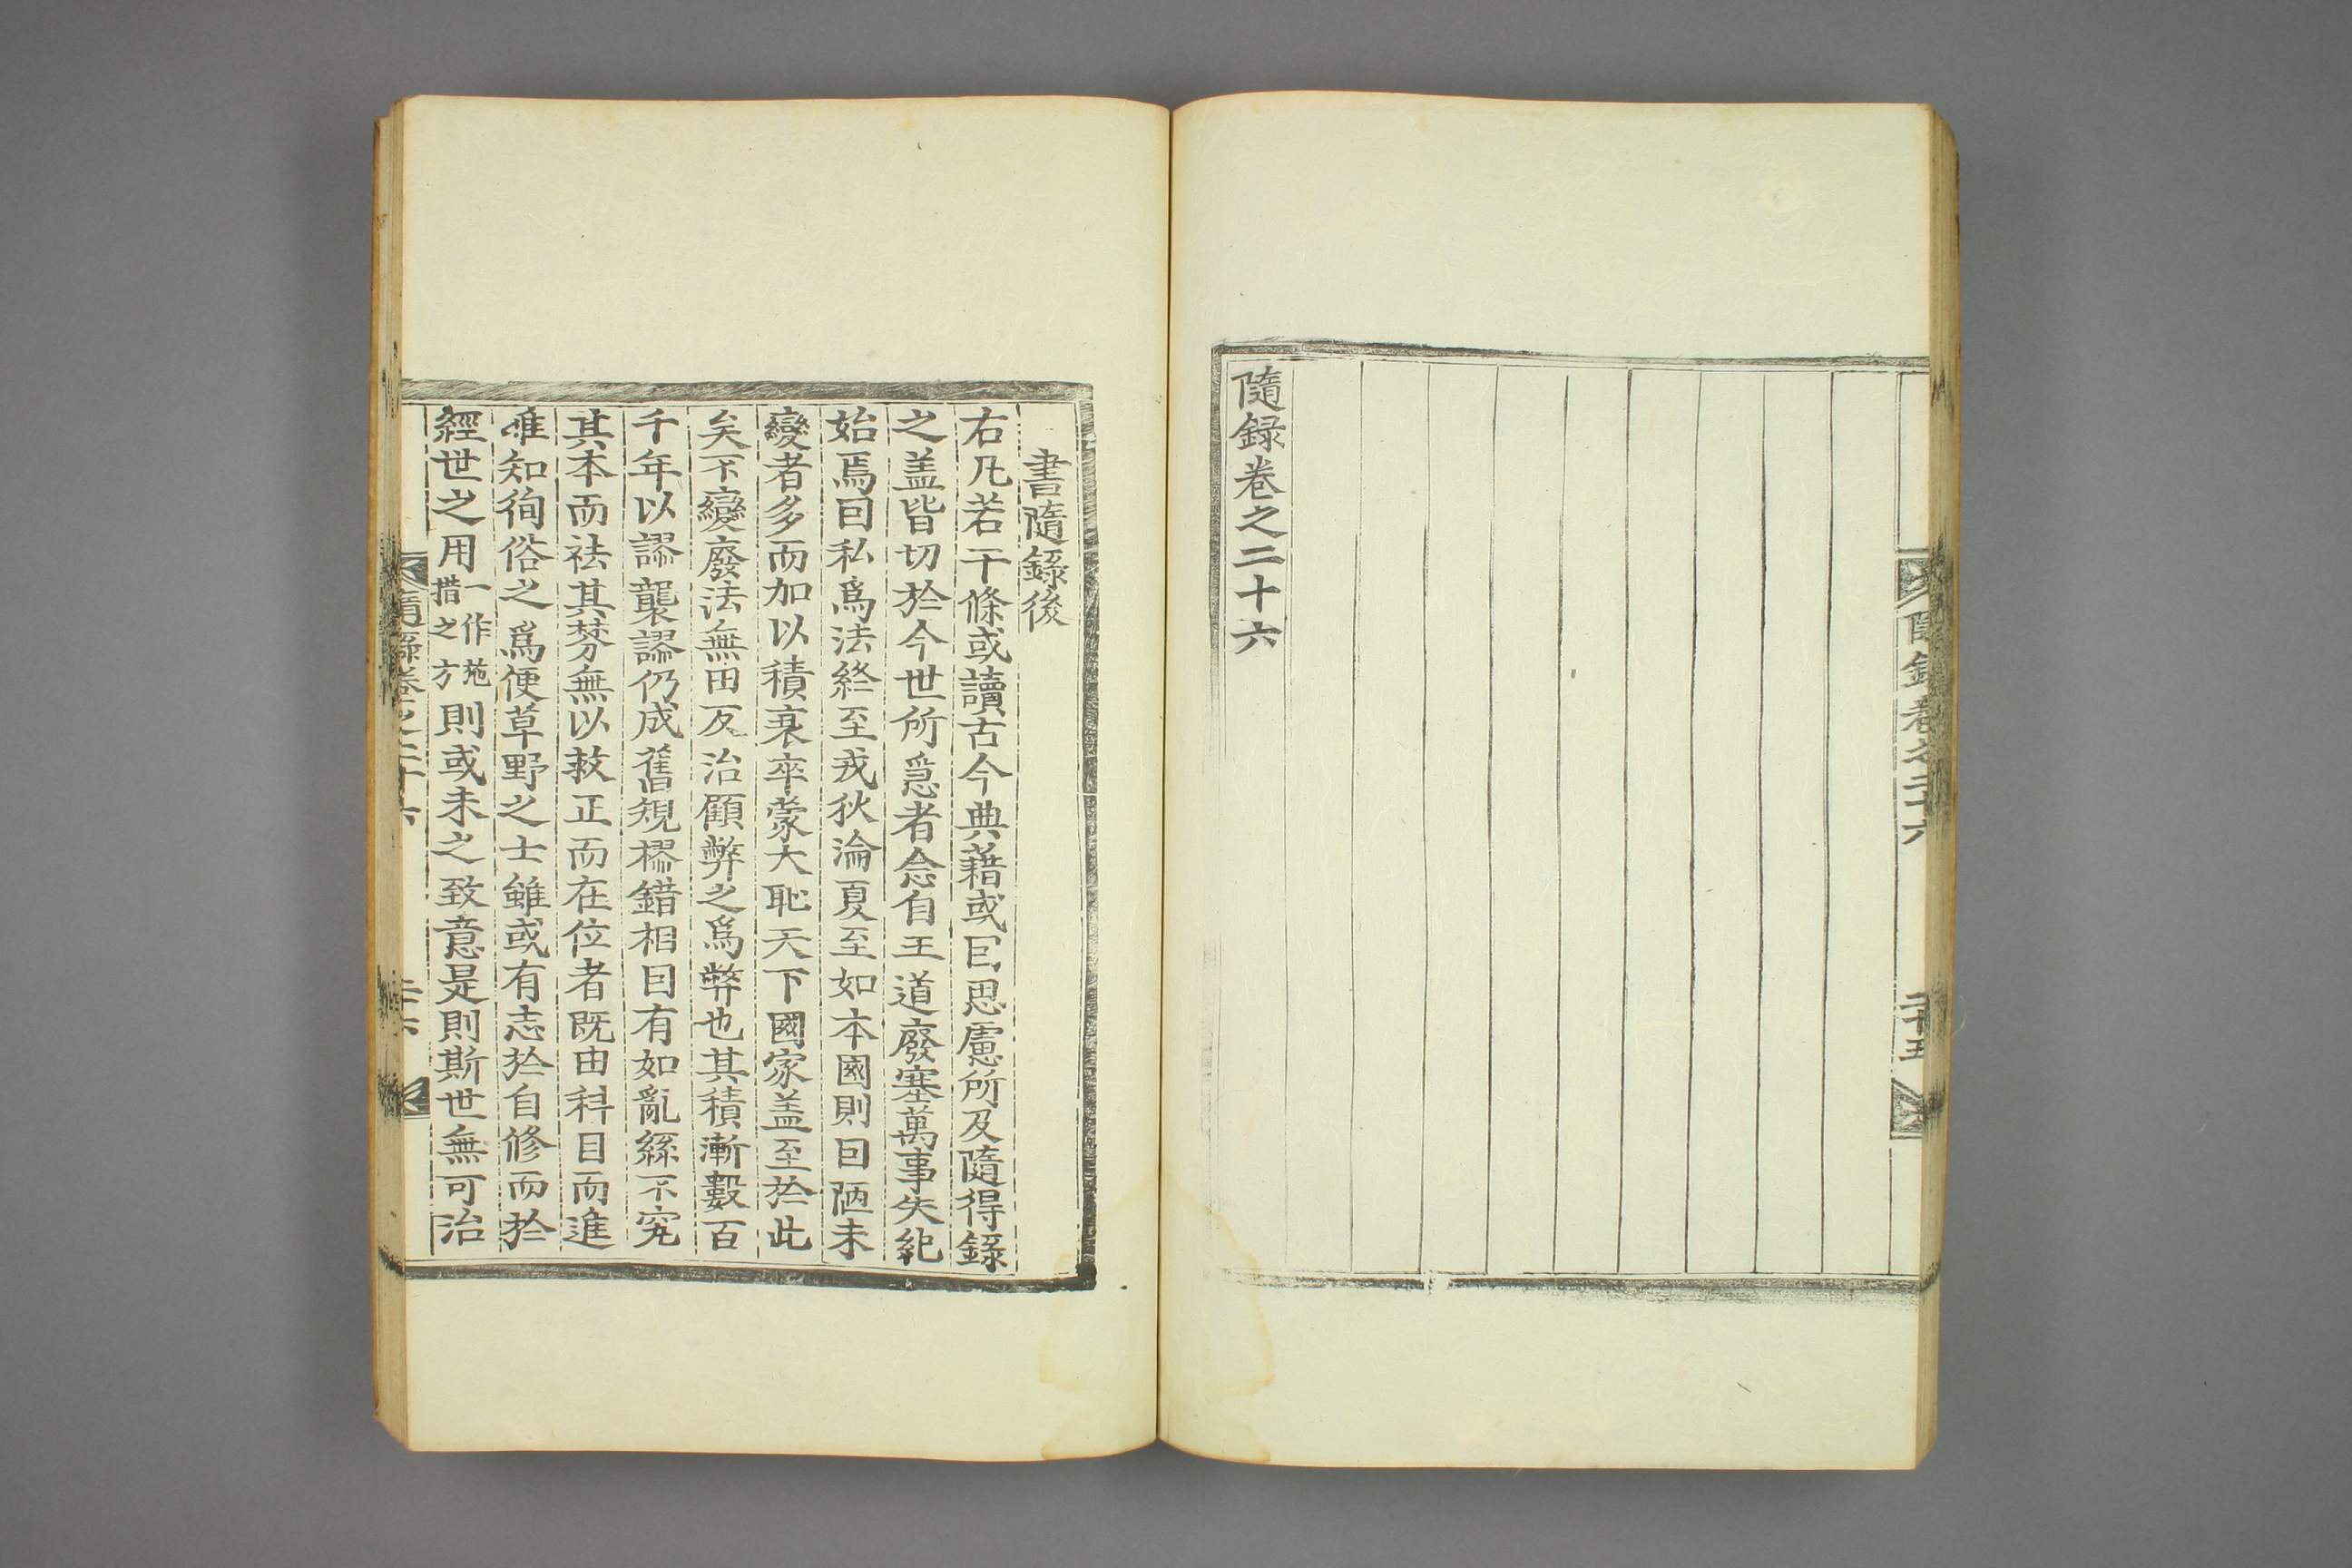 隨錄卷之二十六
二十五
隨録卷之二十六
書隨錄後
右凡若干條或讀古今典藉或因思慮所及隨得錄
之盖皆切於今世所急者念自王道廢塞萬事失紀
始焉因私爲法終至戎狄淪夏至如本國則因陋未
變者多而加以積衰卒蒙大恥天下國家盖至於此
矣不變廢法無田反治顧弊之爲弊也其積漸數百
千年以謬襲謬仍成舊規樛錯相因有如亂絲不究
其本而祛其棼無以救正而在位者既由科目而進
唯知徇俗之爲便草野之士雖或有志於自修而於
經世之用一作施措之方則或未之致意是則斯世無可治
隨錄卷之二十六
二十六